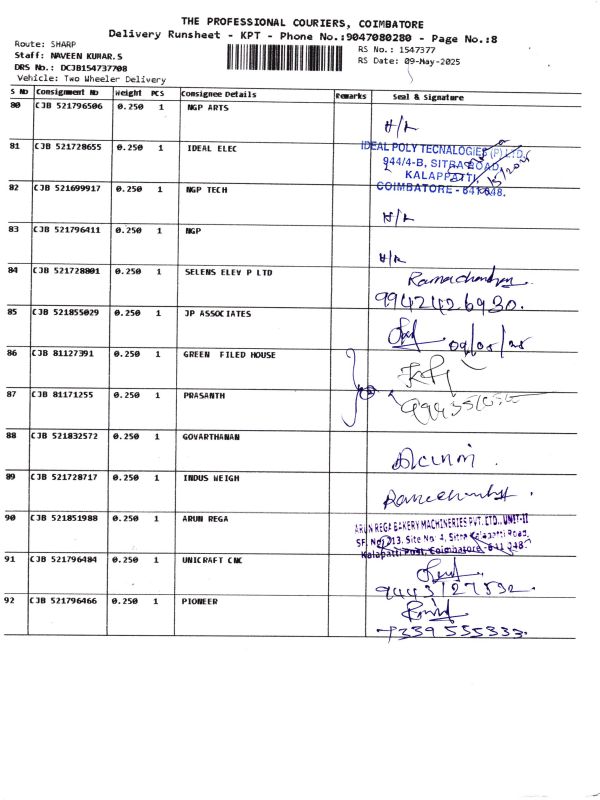 THE PROFESSIONAL COURIERS, COIMBATORE
Delivery Runsheet - KPT - Phone No.:9047080280 - Page No.:8
Route: SHARP
RS No.: 1547377
Staff: NAVEEN KUMAR.S
RS Date: 09-May-2025
DRS No.: DCJB154737708
Vehicle: Two Wheeler Delivery
S No Consignment No Weight PCS Consignee Details Remarks Seal & Signature
80 CJB 521796506 0.250 1 NGP ARTS
81 CJB 521728655 0.250 1 IDEAL ELEC
IDEAL POLY TECNALOGIES (P) LTD.
944/4-B, SITRA ROAD,
KALAPPATTI,
COIMBATORE - 641 048.
82 CJB 521699917 0.250 1 NGP TECH
83 CJB 521796411 0.250 1 NGP
84 CJB 521728801 0.250 1 SELENS ELEV P LTD
Ramachandran
9942426930.
85 CJB 521855029 0.250 1 JP ASSOCIATES
09/05/25
86 CJB 81127391 0.250 1 GREEN FILED HOUSE
87 CJB 81171255 0.250 1 PRASANTH
88 CJB 521832572 0.250 1 GOVARTHANAN
89 CJB 521728717 0.250 1 INDUS WEIGH
90 CJB 521851988 0.250 1 ARUN REGA
ARUN REGA BAKERY MACHINERIES PVT. LTD., UNIT-II
SF. No: 213, Site No: 4, Sitra Kalapatti Road,
Kalapatti Post, Coimbatore - 641 048.
91 CJB 521796484 0.250 1 UNICRAFT CNC
9443127592
92 CJB 521796466 0.250 1 PIONEER